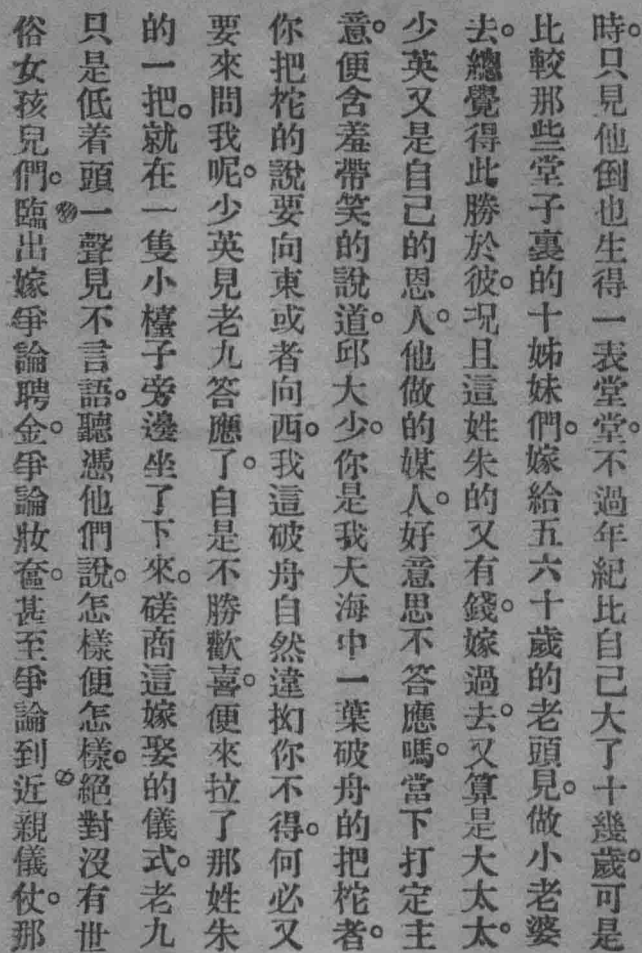 時。只見他倒也生得一表堂堂。不過年紀比自己大了十幾歲。可是
比較那些堂子裏的十姊妹們。嫁給五六十歲的老頭見。做小老婆
去。總覺得此勝於彼。況且這姓朱的又有錢。嫁過去。又算是大太太。
少英又是自己的恩人。他做的媒人。好意思不答應嗎。當下打定主
意。便含羞帶笑的說道。邱大少。你是我大海中一葉破舟的把柁者。
你把柁的說要向東或者向西。我這破舟自然違拗你不得。何必又
要來問我呢。少英見老九答應了。自是不勝歡喜。便來拉了那姓朱
的一把。就在一隻小檯子旁邊坐了下來。磋商這嫁娶的儀式。老九
只是低着頭一聲見不言語。聽憑他們說。怎樣便怎樣。絕對沒有世
俗女孩兒們。臨出嫁爭論聘金。爭論妝奩。甚至爭論到近親儀仗。那